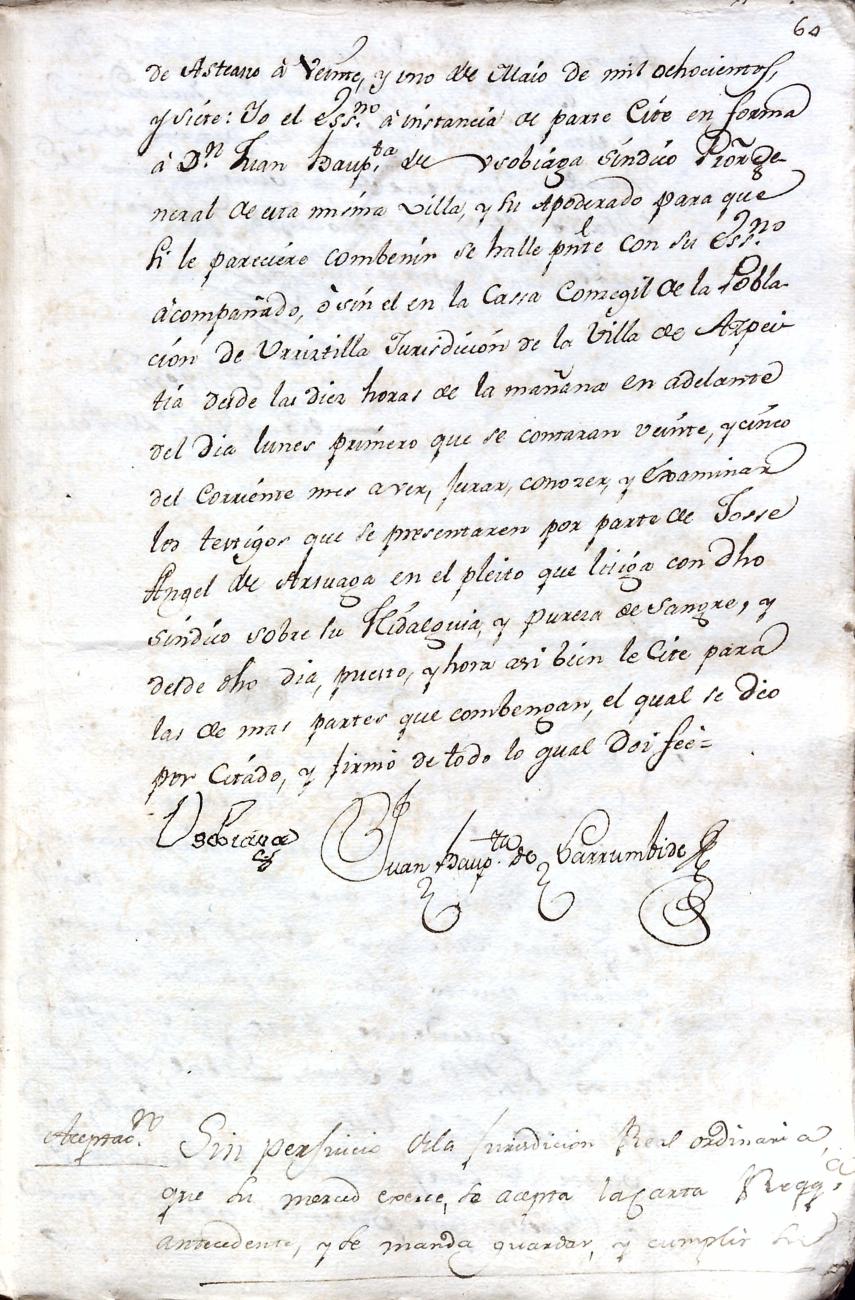 60
de Asteasu à Veinte, y uno de Maio de mil ochocientos,
y siete: Yo el Ess.no à instancia de parte Cite en forma
à D.n Juan Baup.ta de Usobiaga Sindico Pror Ge-
neral de esta misma Villa, y su Apoderado para que
si le pareciere combenir se halle pnte con su Ess.no
acompañado, ò sin el en la Cassa Conzegil de la Pobla-
ción de Urrestilla Jurisdición de la Villa de Azpei-
tia desde las diez horas de la mañana en adelante
del dia lunes primero que se contaran veinte, y cinco
del Corriente mes a ver, jurar, conozer, y Examinar
los testigos que se presentaren por parte de Josse
Angel de Arsuaga en el pleito que litiga con dho
Sindico sobre su Hidalguia, y pureza de Sangre, y
desde dho dia, puesto, y hora asi bien le Cite para
las de mas partes que combengan, el qual se dio
por Citado, y firmó de todo lo qual Doi fee=
Usobiaga
Juan Baup.ta de Larrumbide
Aceptaon.
Sin perjuicio dela Jurisdicion Real ordinaria,
que su merced exerce, se acepta la Carta Reqq.a
antecedente, y se manda guardar, y cumplir su